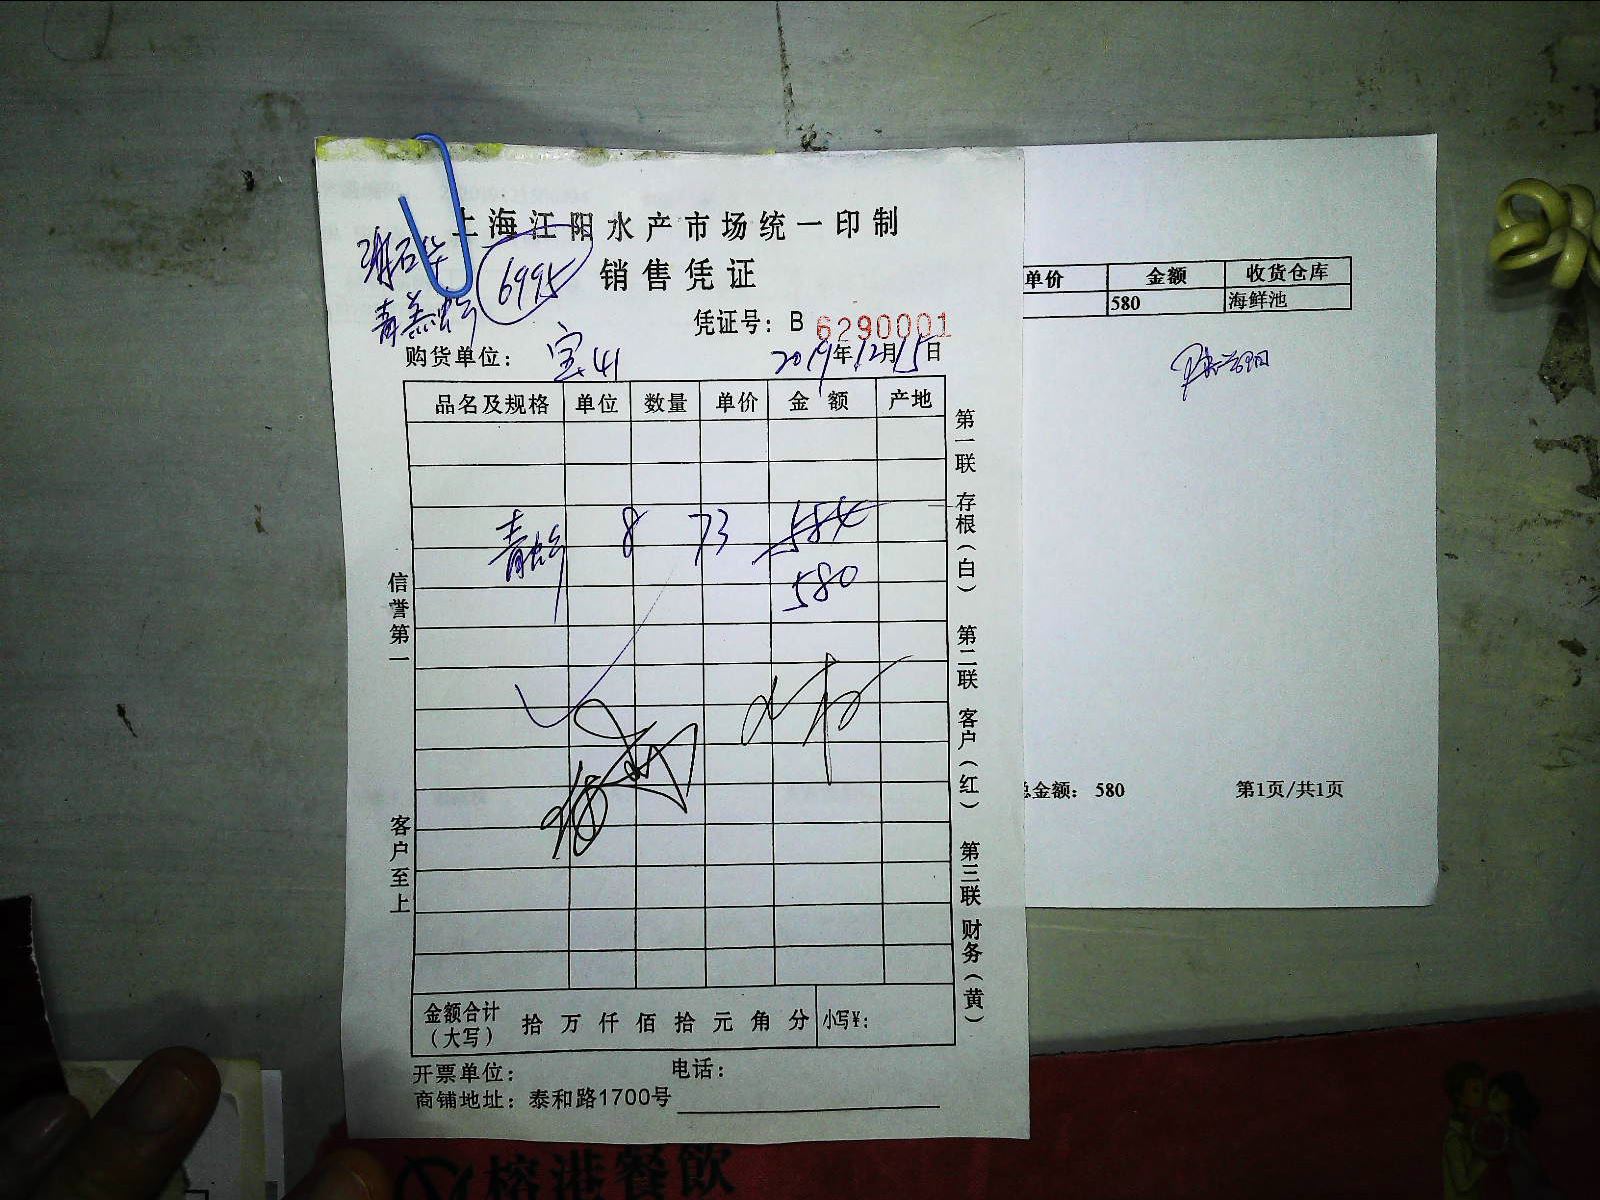 上海江阳水产市场统一印制
6995
销售凭证
凭证号：B 6290001
购货单位： 宝山 2019年12月15日
品名及规格 单位 数量 单价 金额 产地
8 73 584
580
信誉第一
客户至上
第一联 存根（白） 第二联 客户（红） 第三联 财务（黄）
金额合计（大写） 拾 万 仟 佰 拾 元 角 分 小写¥：
开票单位： 电话：
商铺地址：泰和路1700号
单价 金额 收货仓库
580 海鲜池
总金额： 580 第1页/共1页
榕港餐飲